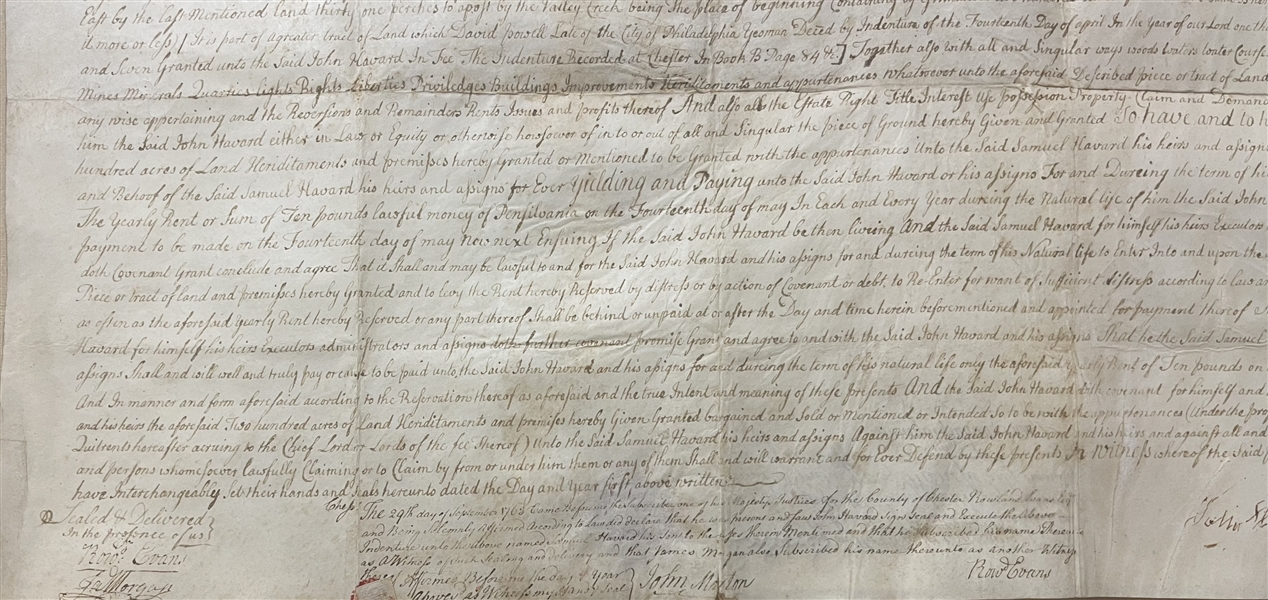 East by the last Mentioned land thirty one perches to a post by the Valley Creek being the place of beginning Containing
it more or less / It is part of a greater tract of Land which David Powell Late of the City of Philadelphia Yeoman Deced by Indenture of the Fourteenth Day of april In the Year of our Lord one
and Seven Granted unto the Said John Havard In Fee The Indenture Recorded at Chester In Book B Page 84 &c] Together also with all and Singular ways woods waters water Course
Mines Minerals Quarries Lights Rights Liberties Priviledges Buildings Improvements Heriditaments and appurtenances whatsoever unto the aforesaid Described piece or tract of Land
any wise appertaining and the Reversions and Remainders Rents Issues and profits thereof And also all the Estate Right Title Interest Use possession Property Claim and Demand
him the Said John Havard either in Law or Equity or otherwise howsoever of in to or out of all and Singular the piece of Ground hereby Given and Granted To have and to
hundred acres of Land Heriditaments and premisses hereby Granted or Mentioned to be Granted with the appurtenances Unto the Said Samuel Havard his heirs and assigns
and Behoof of the Said Samuel Havard his heirs and assigns for Ever Yielding and Paying unto the Said John Havard or his assigns For and Dureing the term of
The Yearly Rent or Sum of Ten pounds lawful money of Pensilvania on the Fourteenth day of may In Each and Every Year dureing the Natural life of him the Said John
payment to be made on the Fourteenth day of may Now next Ensuing If the Said John Havard be then liveing And the Said Samuel Havard for himself his heirs Executors
doth Covenant Grant conclude and agree That it Shall and may be lawful to and for the Said John Havard and his assigns for and dureing the term of his Natural life to Enter Into and upon the
Piece or tract of land and premisses hereby Granted and to levy the Rent hereby Reserved by distress or by action of Covenant or debt, to Re-Enter for want of Sufficient distress according to law
as often as the aforesaid yearly Rent hereby Reserved or any part thereof Shall be behind or unpaid at or after the Day and time herein beforementioned and appointed for payment thereof
Havard for himself his heirs Executors administrators and assigns doth further covenant promise Grant and agree to and with the Said John Havard and his assigns That he the Said Samuel
assigns Shall and will well and truly pay or cause to be paid unto the Said John Havard and his assigns for and dureing the term of his natural life only the aforesaid yearly Rent of Ten pounds on
And In manner and form aforesaid according to the Reservation thereof as aforesaid and the true Intent and meaning of these Presents And the Said John Havard doth covenant for himself and
and his heirs the aforesaid Two hundred acres of Land Heriditments and premises hereby Given Granted bargained and Sold or Mentioned or Intended So to be with the appurtenances (Under the
Quitrents hereafter acruing to the Chief Lord or Lords of the fee thereof) Unto the Said Samuel Havard his heirs and assigns Against him the Said John Havard and his heirs and against all and
and persons whomsoever lawfully Claiming or to Claim by from or under him them or any of them Shall and will warrant and for Ever Defend by these presents In Witness whereof the Said
have Interchangeably Set their hands and Seals hereunto dated the Day and Year first above written
Sealed & Delivered
In the presence of us
Rowd. Evans
Jas Morgan
Chess
The 29th day of September 1763 Came Before me the Subscriber one of his Majestys Justices for the County of Chester Rowland Evans
and Being Solemnly affirmed According to Law did declare that he was present and Saw John Havard Sign Seal and Execute the above
Indenture unto the above named Samuel Havard his Son to the uses therein Mentioned and that he Subscribed his name Thereunto
as a Witness of Such Sealing and delivery and that James Morgan also Subscribed his name thereunto as another Witness
thereof
Affirmed Before me the day & Year
above as Witness my Hand & Seal
John Morton
Rowd Evans
John